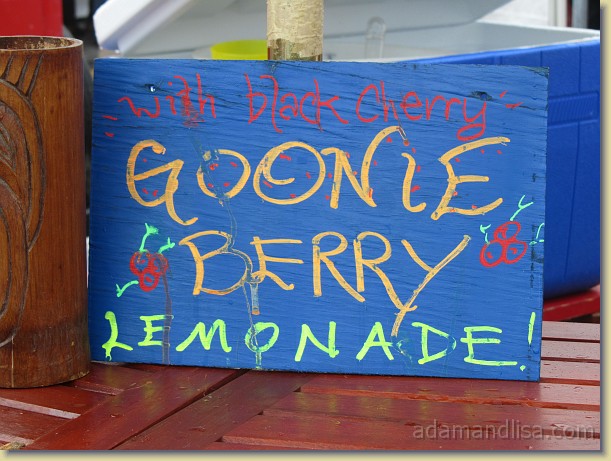 with black cherry
GOONIE
BERRY
LEMONADE!
adamandlisa.com